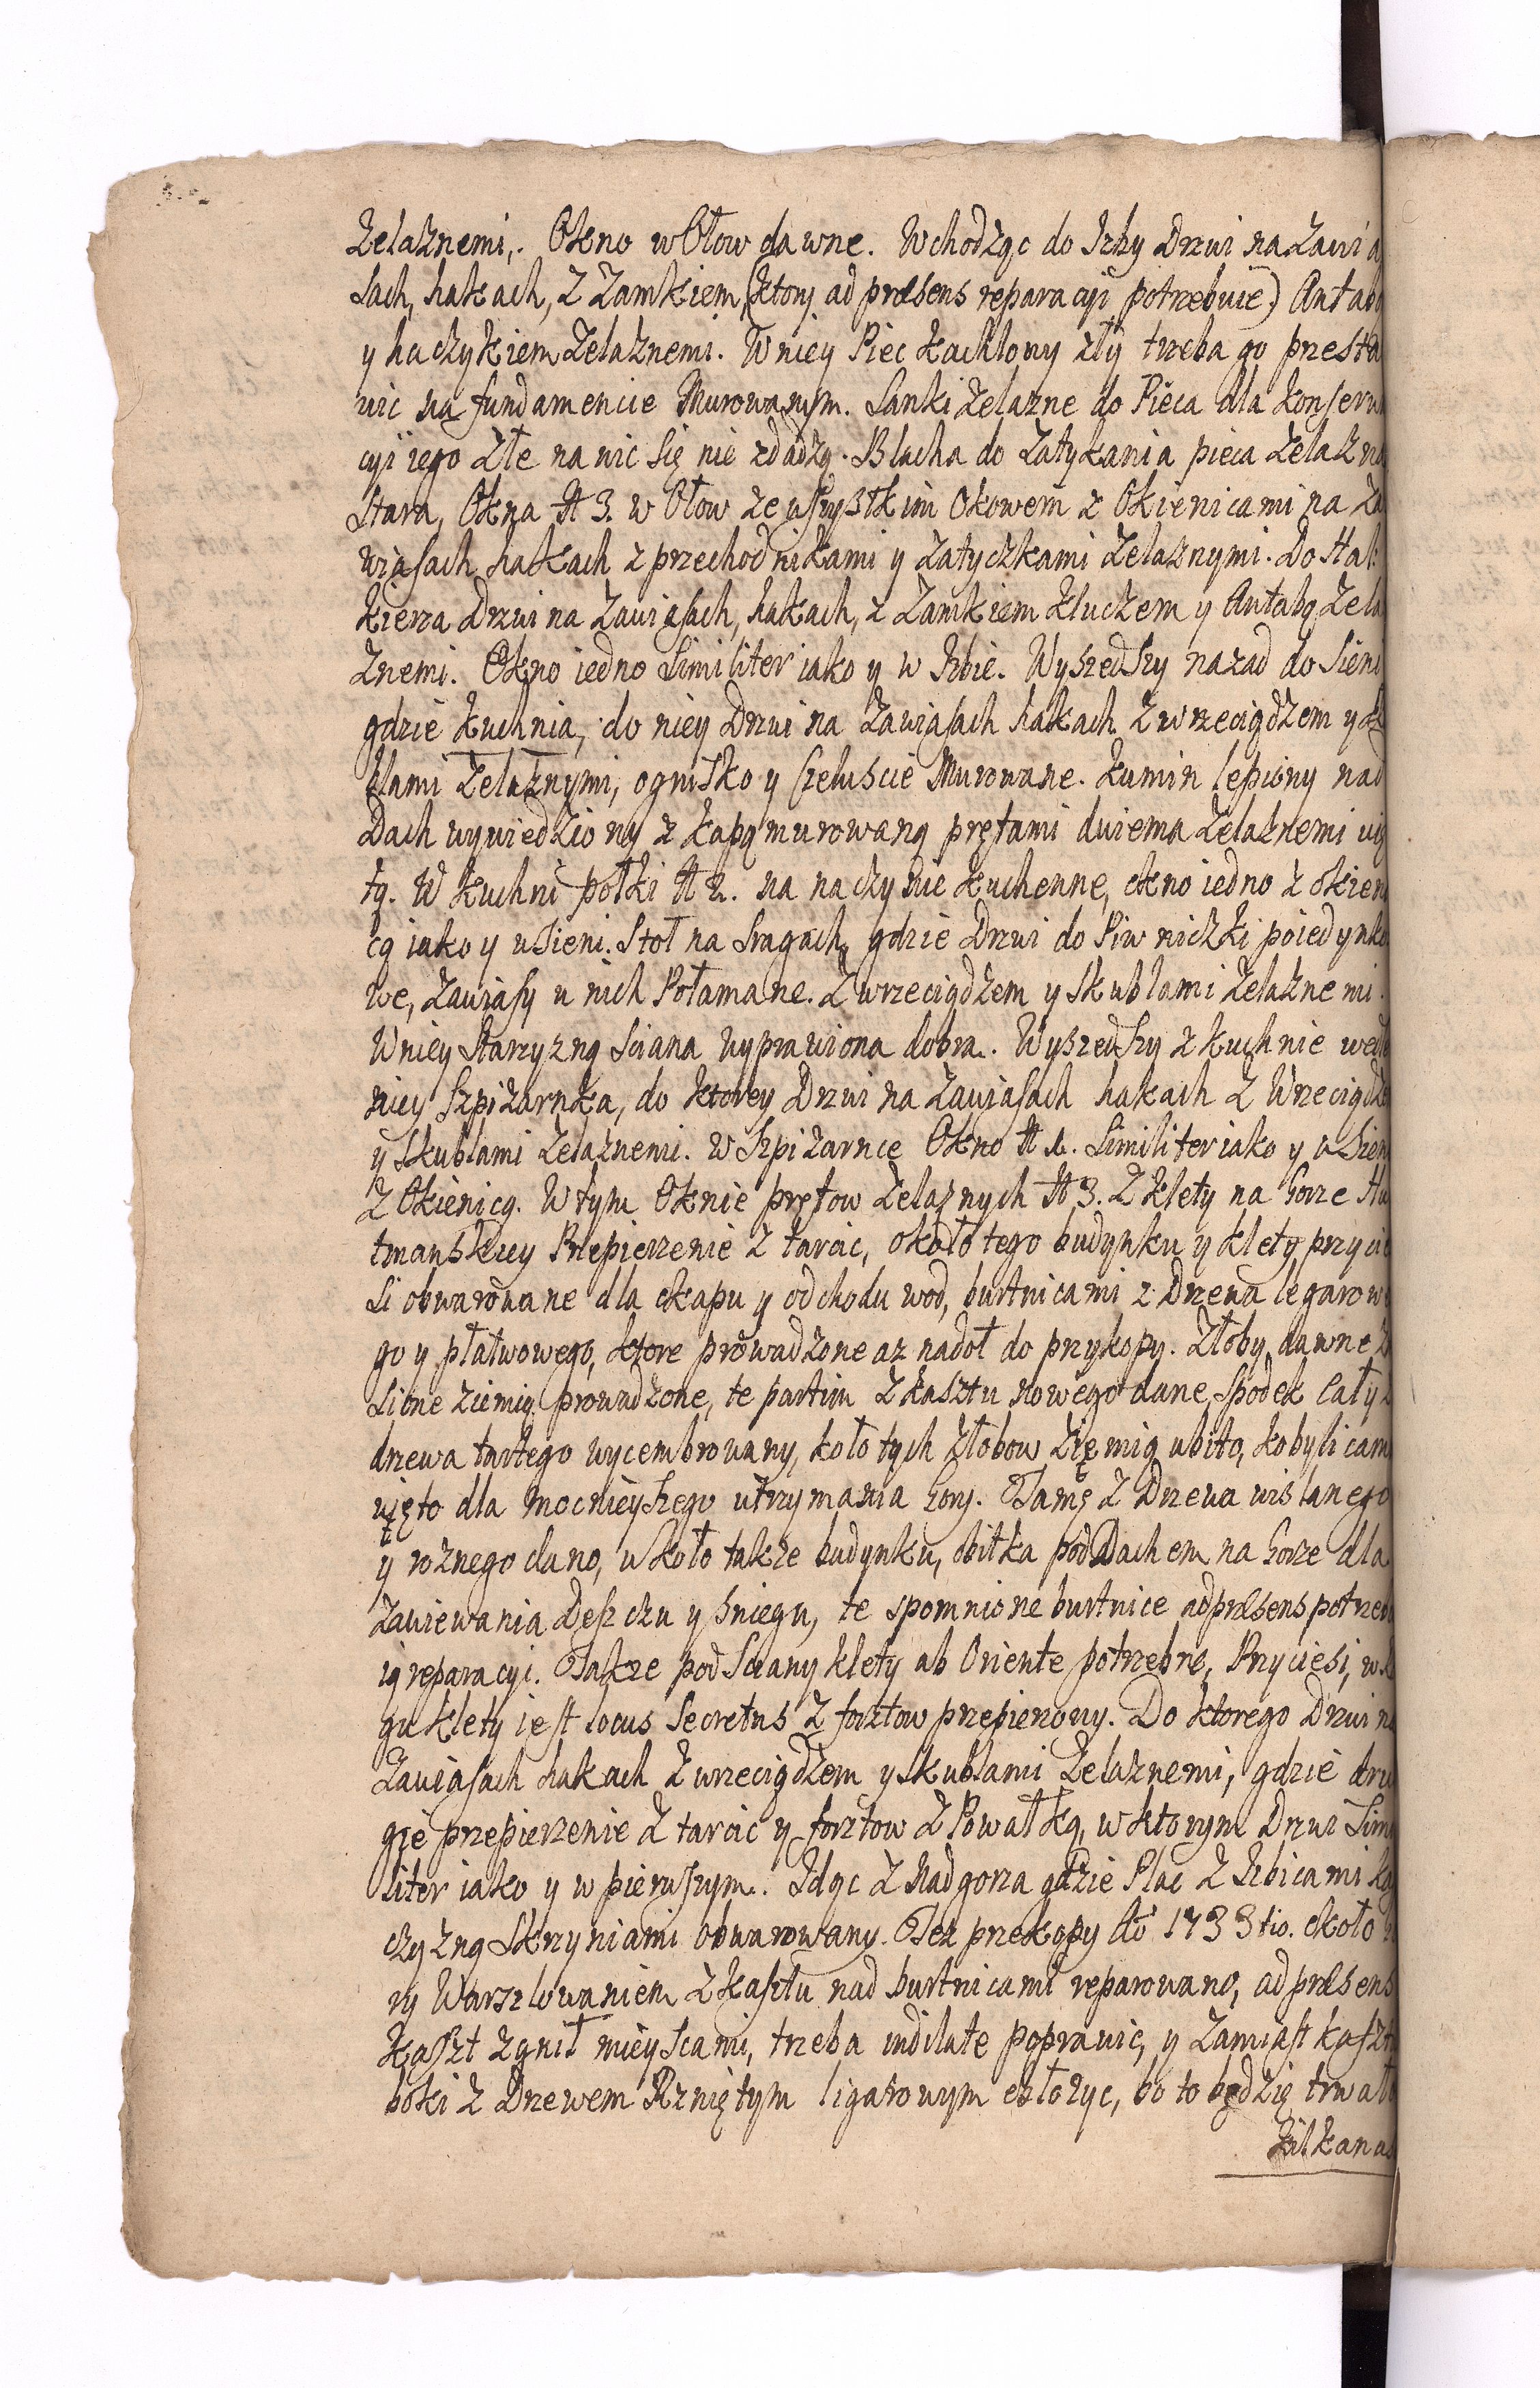 Zelaznemi,. Okno w Ołow dawne. Wchodząc do Izby Drzwi na Zawia
sach, hakach, z Zamkiem, (ktory ad præsens reparacyi potrzebuie) Antab
y haczykiem Zelaznemi. W niey Piec kachlowy zły trzeba go przesta
wic na fundamencie Murowanym. Sanki Zelazne do Pieca dla konserwa
cyi iego złe na nic się nie zdadzą. Blacha do Zatykania pieca Zelazna
Stara, Okna № 3. w Ołow ze wszystkim Okowem z Okienicami na Za
wiasach hakach z przechodnikami y Zatyczkami Zelaznymi. Do Hal:
kierza Drzwi na Zawiasach, hakach, z Zamkiem kluczem y Antabą Zela
znemi. Okno iedno Similiter iako y w Izbie. Wyszedszy nazad do Sieni
gdzie kuchnia, do niey Drzwi na Zawiasach hakach z wrzeciądzem y sk
blami Zelaznymi, ognisko y czeluscie Murowane. kumin lepiony nad
Dach wywiedziony z kapą murowaną prętami dwiema Zelaznemi uię
tą. W kuchni połki № 2. na naczynie kuchenne, okno iedno z okieni
cą iako y w Sieni. Stoł na Sragach, gdzie Drzwi do Piwniczki poiedynko
we, zawiasy u nich Połamane. z wrzeciądzem y skublami Zelaznemi.
W niey Starzyzną Sciana wyprawiona dobra. Wyszedszy z kuchnie wedl
niey Szpizarnka, do ktorey Drzwi na Zawiasach hakach z Wrzeciądze
y Skublami Zelaznemi. w Szpizarnce Okno № 1. Similiter iako y w Sieni
z Okienicą. W tym Oknie prętow Zelaznych № 3. z klety na Gorze Ha
tmanskiey Przepierzenie z tarcic, około tego budynku y klety przycie
si obwarowane dla okapu y odchodu wod, burtnicami z Drzewa legarowe
go y płatwowego, ktore prowadzone az nadoł do przykopy. Złoby dawne
sione ziemią prowadzone, te partim z kasztu nowego dane, spodek cały z
drzewa tartego wycembrowany, koło tych złobow ziemią ubito, kobylicami
uięto dla mocnieyszego utrzymania Gory. Tamę z Drzewa wislanego
y roznego dano, wkoło takze budynku, obitka pod Dachem na Gorze dla
Zawiewania Deszczu y sniegu, te spomnione burtnice ad præsens potrzebu
ią reparacyi. Takze pod Sciany klety ab Oriente potrzebne, Przyciesi, w
gu klety iest locus Secretus z forztow przepierzony. Do ktorego Drzwi na
Zawiasach hakach z wrzeciądzem y skublami Zelaznemi, gdzie dru
gie przepierzenie z tarcic y forztow z Powałką, w ktorym Drzwi Simi
liter iako y w pierwszym. Idąc z Nadgorza gdzie Plac z Izbicami ką
czyzną skrzyniami obwarowany. Tez przekopy Aō 1733tio. około
ry Warszlowaniem z kasztu nad burtnicami reparowano, ad præsens
kaszt zgnił mieyscami, trzeba indilate poprawic, y Zamiast kasztu
boki z Drzewem Rzniętym ligarowym obłozyc, bo to będzie trwało
kilkanas